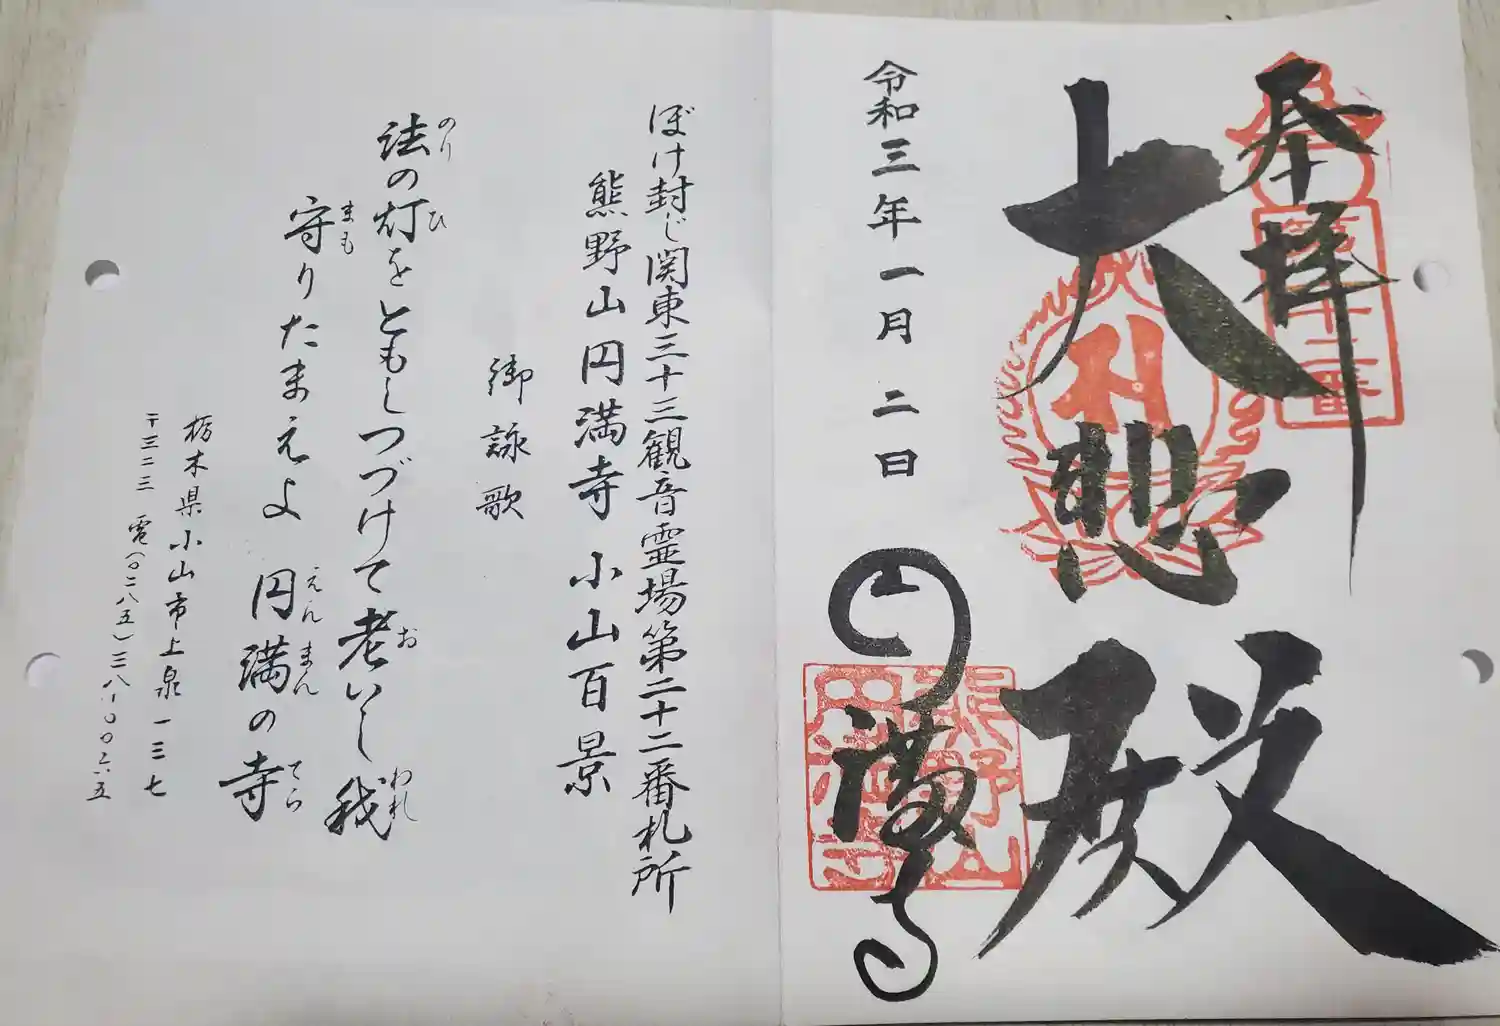 奉拝
第二十二番
大悲殿
令和三年一月二日
円満寺
熊野山
円満寺
ぼけ封じ関東三十三観音霊場第二十二番札所
熊野山円満寺 小山百景
御詠歌
法の灯をともしつづけて老いし我
のり ひ お われ
守りたまえよ 円満の寺
まも えんまん てら
栃木県小山市上泉一三七
〒三二三 電(〇二八五)三八-〇〇六五